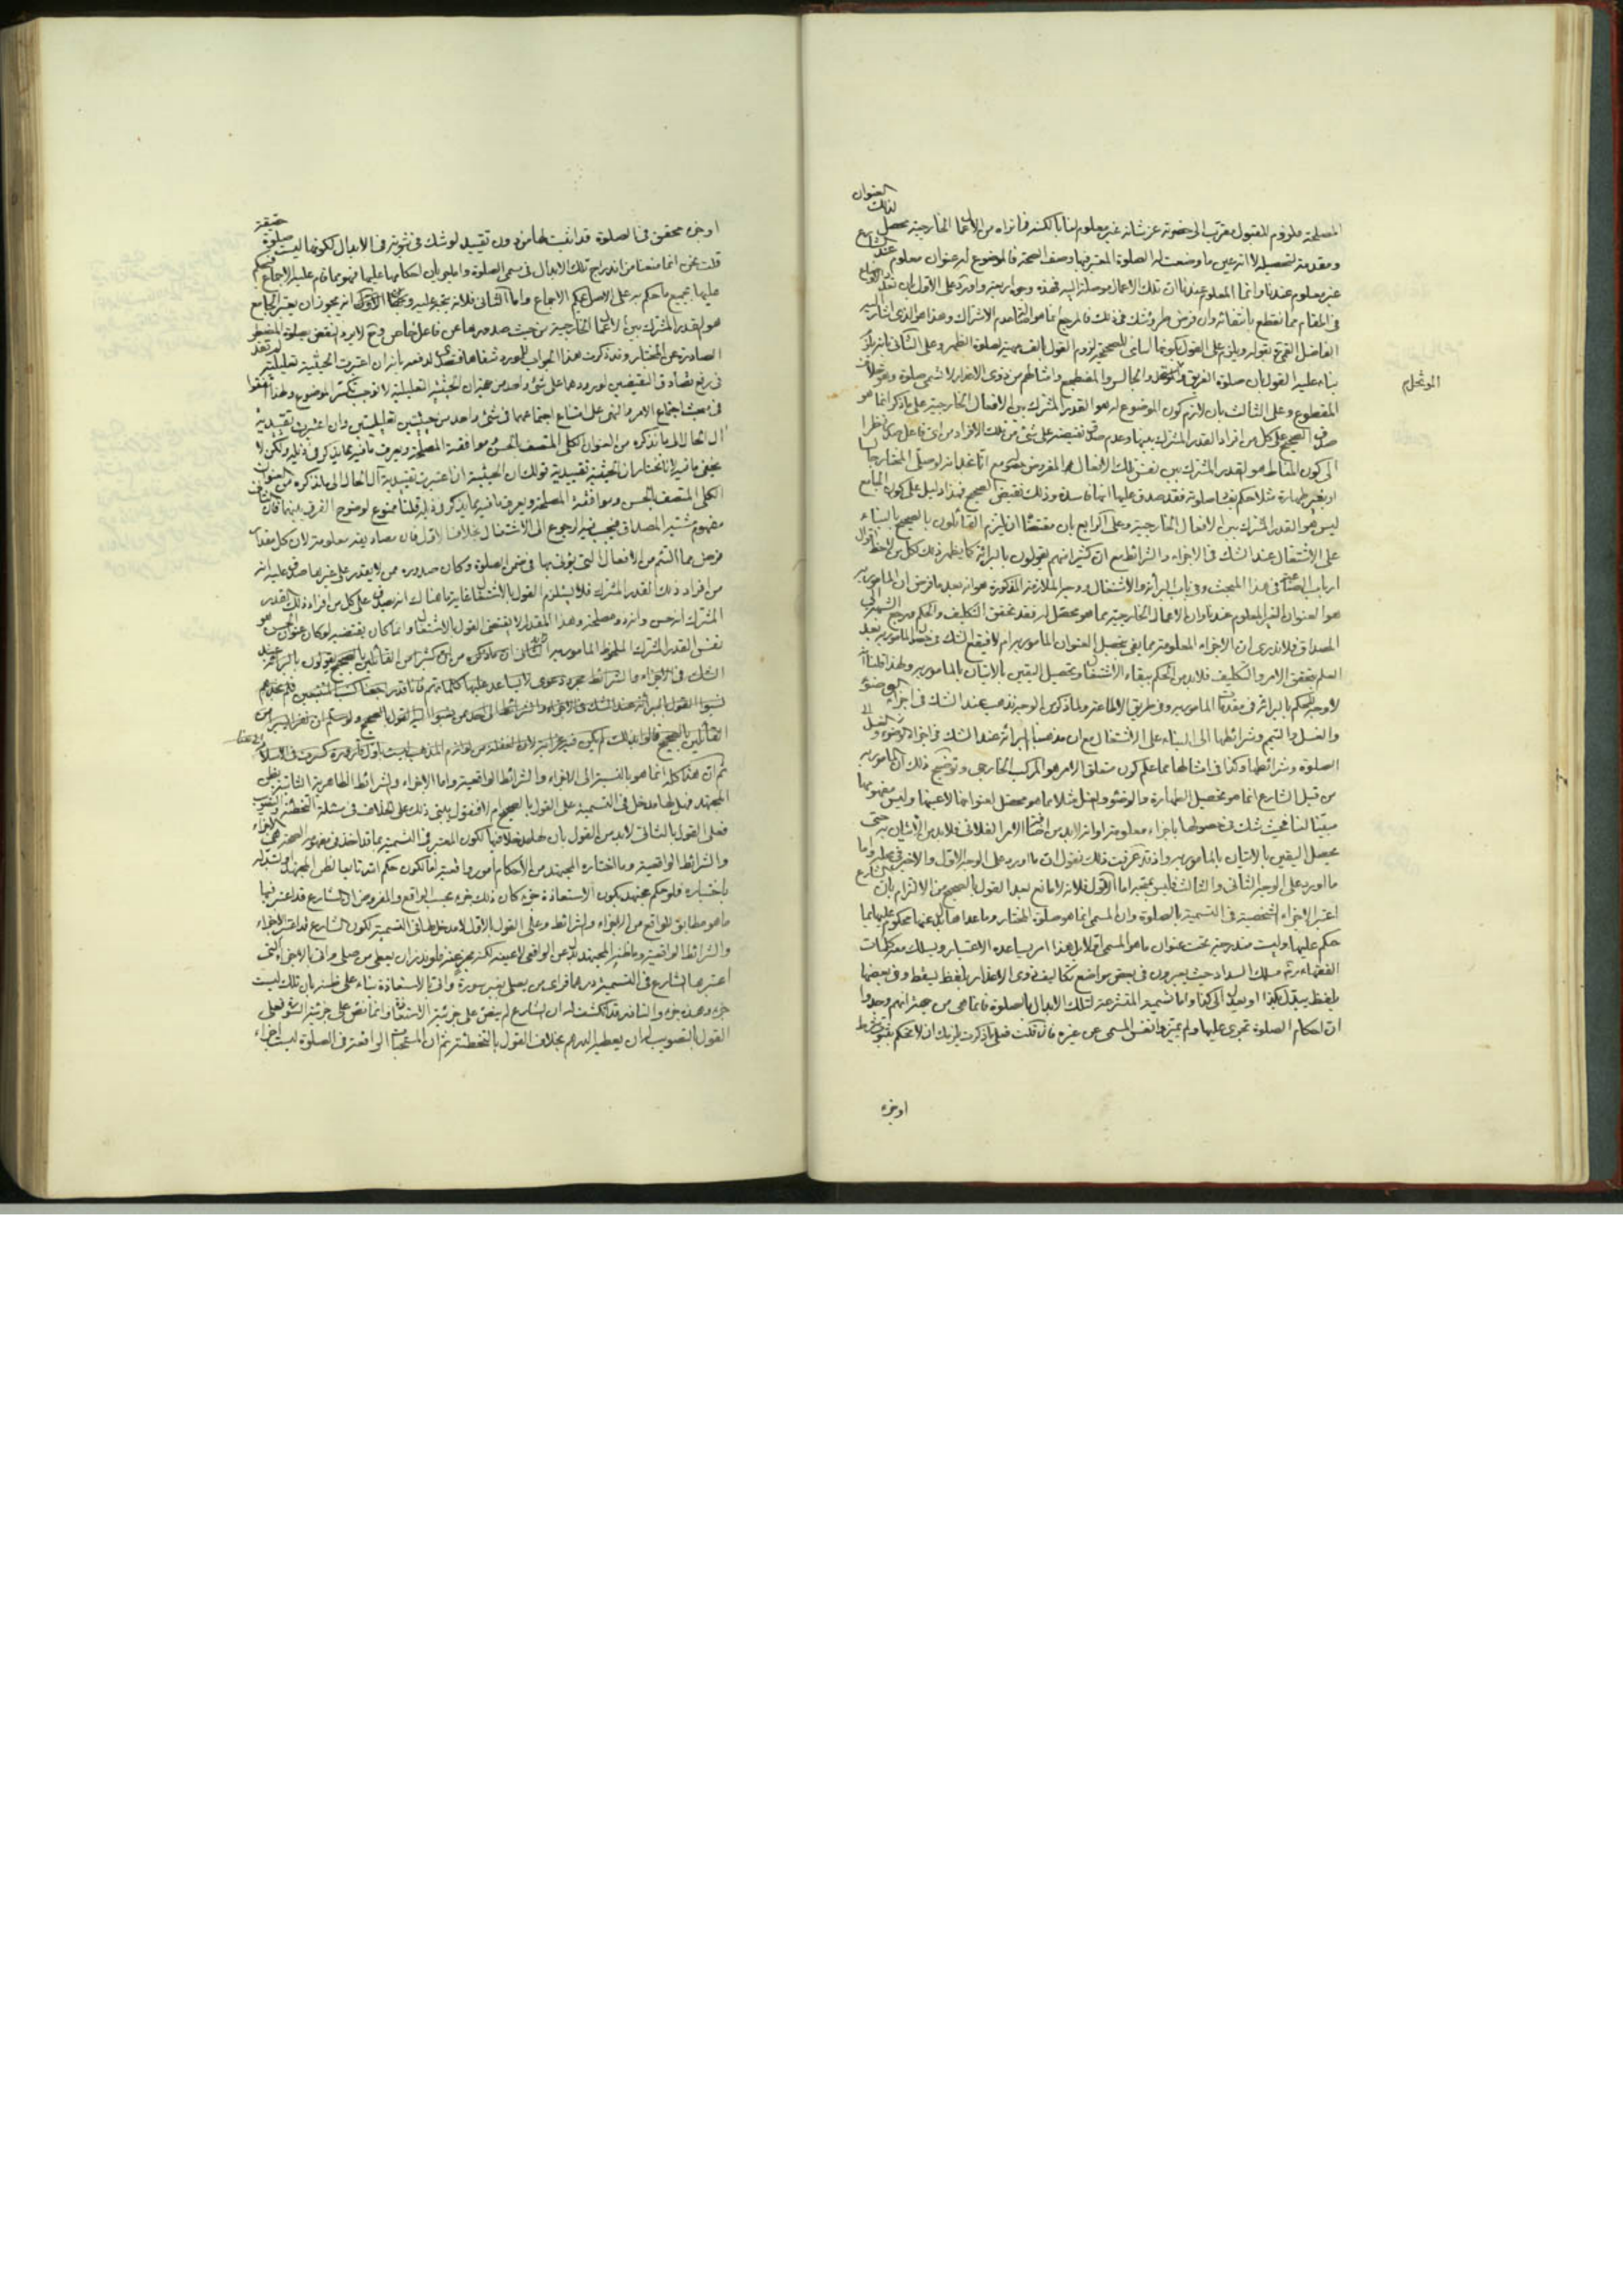 المصلحة ملزوم للقبول مقرّب الى حضرته عز شانه غير معلوم لنا بالكنه فما نراه من الاعمال الخارجية محصل لذلك العنوان
ومقدمة لتحصيله لا انه عين ما وضعت له الصلوة المعتبر فيها وصف الصحة فالموضوع له عنوان معلوم عند الشارع
غير معلوم عندنا وانما المعلوم عندنا ان تلك الاعمال موصلة اليه فهذه وجوه اربعة واورد على الاول بان تعدد الاوضاع
في المقام مما نقطع بانتفائه وان فرض طرو شك في ذلك فالمرجع انما هو اصالة عدم الاشتراك وهذا هو الذى اشار اليه
الفاضل القمي بقوله ويلزم على القول بكونها اسامى للصحيحة لزوم القول بالف مهية لصلوة الظهر وعلى الثانى بانه يلزم
بناء عليه القول بان صلوة الغريق والجالس والمضطجع وامثالهم من ذوى الاعذار لا تسمى صلوة وهو خلاف
المقطوع وعلى الثالث بان لازم كون الموضوع له هو القدر المشترك بين الافعال الخارجية على ما ذكر انما هو
صدق الصحيح على كل من افراد القدر المشترك بينها وعدم صدق نقيضه على شئ من تلك الافراد من اى فاعل صدر نظرا
الى كون المناط هو القدر المشترك بين نفس تلك الافعال هو المفروض حصوله مع انا نجد انه لو صلى المختار جالسا
او بغير طهارة مثلا حكم بفساد صلوته فقد صدق عليها انها فاسدة وذلك نقيض الصحيح فهذا دليل على كون الجامع
ليس هو القدر المشترك بين الافعال الخارجية وعلى الرابع بان مقتضاه ان يلتزم القائلون بالصحيح بالبناء
على الاشتغال عند الشك في الاجزاء والشرائط مع ان كثيرا منهم يقولون بالبرائة كما يظهر ذلك لكل من لاحظ اقوال
ارباب الصناعة في هذا المبحث وفي باب البرائة والاشتغال ووجه الملازمة المذكورة هو انه بعد ما فرض ان المامور به
هو العنوان الغير المعلوم عندنا وان الاعمال الخارجية مما هو محصل له فقد تحقق التكليف والحكم ومرجع الشك الى
المصداق فلا ندرى ان الاجزاء المعلومة مما يفى بتحصيل العنوان المامور به ام لا فيقع الشك في حصول المامور به بعد
العلم بتحقق الامر والتكليف فلا بد من الحكم ببقاء الاشتغال وتحصيل اليقين بالاتيان بالمامور به ولهذا قلنا انه
لا وجه للحكم بالبرائة في مقدمات المامور به وفي طريق الاطاعة ولما ذكر من الوجه نذهب عند الشك في اجزاء الوضوء
والغسل والتيمم وشرائطها الى البناء على الاشتغال مع ان مذهبنا البرائة عند الشك في اجزاء
الصلوة وشرائطها وكذا في امثالها مما علم كون متعلق الامر هو المركب الخارجى وتوضيح ذلك ان المامور به
من قبل الشارع انما هو تحصيل الطهارة والوضوء والغسل مثلا مما هو محصل لعنوانها لا عينها وليس مفهومها
مبيّنا لنا فحيث شك في حصولها باجزاء معلومة او انه لا بد من انضمام الامر الفلانى فلا بد من الاتيان به حتى
يحصل اليقين بالاتيان بالمامور به واذ قد عرفت ذلك نقول ان ما اورد على الوجه الاول والاخير في محله واما
ما اورد على الوجه الثانى والثالث فليس بمتجه اما الاول فلانه لا مانع بعد القول بالصحيح من الالتزام بان الشارع
اعتبر الاجزاء الشخصية في التسمية بالصلوة وان المسمى انما هو صلوة المختار وما عداها بدل عنها محكوم عليها بما
حكم عليها وليست مندرجة تحت عنوان ما هو المسمى اصلا بل هذا امر يساعده الاعتبار ويسلك معه كلمات
الفقهاء رة مسلك السداد حيث يعبرون في بعض مواضع تكاليف ذوى الاعذار بلفظ يسقط وفي بعضها
بلفظ يبدّل بكذا او يعدل الى كذا واما تسمية المتشرعة لتلك الابدال بالصلوة فانما هى من جهة انهم وجدوا
ان احكام الصلوة تجرى عليها ولم يميزوا نفس المسمى عن غيره فان قلت فعلى ما ذكرت يلزمك ان لا تحكم بثبوت شرط
الوتحلم
او جزء
او جزء محقق في الصلوة قد اثبت لها من دون تقييد لو شك في ثبوته في الابدال لكونها ليست صلوة حقيقة
قلت نحن انما منعنا من اندراج تلك الابدال في مسمى الصلوة واما جريان احكامها عليها فهو مما قام عليه الاجماع فيحكم
عليها بجميع ما حكم به على الاصل بحكم الاجماع واما الثانى فلانه يتجه عليه انه يجوز ان يعتبر الجامع
هو القدر المشترك بين الاعمال الخارجية من حيث صدورها عن فاعل خاص وح لا يرد النقض بصلوة المضطر
الصادرة عن المختار وقد ذكرت هذا الجواب للمورد شفاها فتصدى لدفعه بانه ان اعتبرت الحيثية تعليلية لم تفد
في رفع تصادق النقيضين لورودهما على شئ واحد من جهة ان الحيثية التعليلية لا توجب تكثر الموضوع ولهذا اتفقوا
في مبحث اجتماع الامر والنهى على امتناع اجتماعهما في شئ واحد من حيثيتين تعليليتين وان اعتبرت تقييدية
آل الحال الى ما نذكره من العنوان الكلى المتصف بالحسن وموافقة المصلحة ويعرف ما فيه مما يذكر في ذيله ولكن لا
يخفى ما فيه لانا نختار ان الحيثية تقييدية قولك ان الحيثية ان اعتبرت تقييدية آل الحال الى ما نذكره من العنوان
الكلى المتصف بالحسن وموافقة المصلحة ويعرف ما فيه مما يذكر في ذيله قلنا ممنوع لوضوح الفرق بينهما فان الثانى
مفهوم مشتبه المصداق فيجب فيه الرجوع الى الاشتغال بخلاف الاول فان مصاديقه معلومة لان كل مقدار
فرض مما التئم من الافعال التى يؤتى بها في ضمن الصلوة وكان صدوره ممن لا يقدر على غيرها صدق عليه انه
من افراد ذلك القدر المشترك فلا يستلزم القول بالاشتغال غاية ما هناك انه يصدق على كل من افراد ذلك القدر
المشترك انه حسن وانه ذو مصلحة وهذا المقدار لا يقتضى القول بالاشتغال وانما كان يقتضيه لو كان عنوان الحسن هو
نفس القدر المشترك الملحوظ المامور به الثانى ان ما ذكره من ان كثيرا من القائلين بالصحيح يقولون بالبرائة عند
الشك في الاجزاء والشرائط مجرد دعوى لا يساعد عليها كلماتهم فانا قد راجعنا كتب المتتبعين فلم نجدهم
نسبوا القول بالبرائة عند الشك في الاجزاء والشرائط الى احد ممن نسبوا اليه القول بالصحيح ولو سلم ان نفرا يسيرا من
القائلين بالصحيح قالوا بذلك لم يكن فيه غرابة لان الغفلة عن لوازم المذهب ليست باول قارورة كسرت في الاسلام
ثم ان هذا كله انما هو بالنسبة الى الاجزاء والشرائط الواقعية واما الاجزاء والشرائط الظاهرية الثابتة بظن
المجتهد فهل لها مدخل في التسمية على القول بالصحيح ام لا فنقول يبتنى ذلك على الخلاف في مسئلة التخطئة والتصويب
فعلى القول بالثانى لا بد من القول بان لها مدخلا فيها لكون المعتبر في التسمية مما قد اخذ في مفهومه الصحة هى الاجزاء
والشرائط الواقعية وما اختاره المجتهد من الاحكام امور واقعية لها لكون حكم الله تابعا لظن المجتهد او تبدله
باختياره فلو حكم مجتهد بكون الاستعاذة جزء كان ذلك جزء بحسب الواقع والمفروض ان الشارع قد اعتبر فيها
ما هو مطابق للواقع من الاجزاء والشرائط وعلى القول بالاول لا مدخل لها في التسمية لكون الشارع قد اعتبر الاجزاء
والشرائط الواقعية وما ظنه المجتهد بدل عن الواقعى لا عينه
اعتبرها الشارع في التسمية درهما فراى من يصلى بغير سورة واتى بالاستعاذة بناء على ظنه بان تلك ليست
جزء وهذه جزء والناذر قد انكشف له ان الشارع لم ينص على جزئية الاستعاذة وانما نص على جزئية السورة فعلى
القول بالتصويب له ان يعطيه الدرهم بخلاف القول بالتخطئة ثم ان المستحبات الواقعة في الصلوة ليست اجزاء